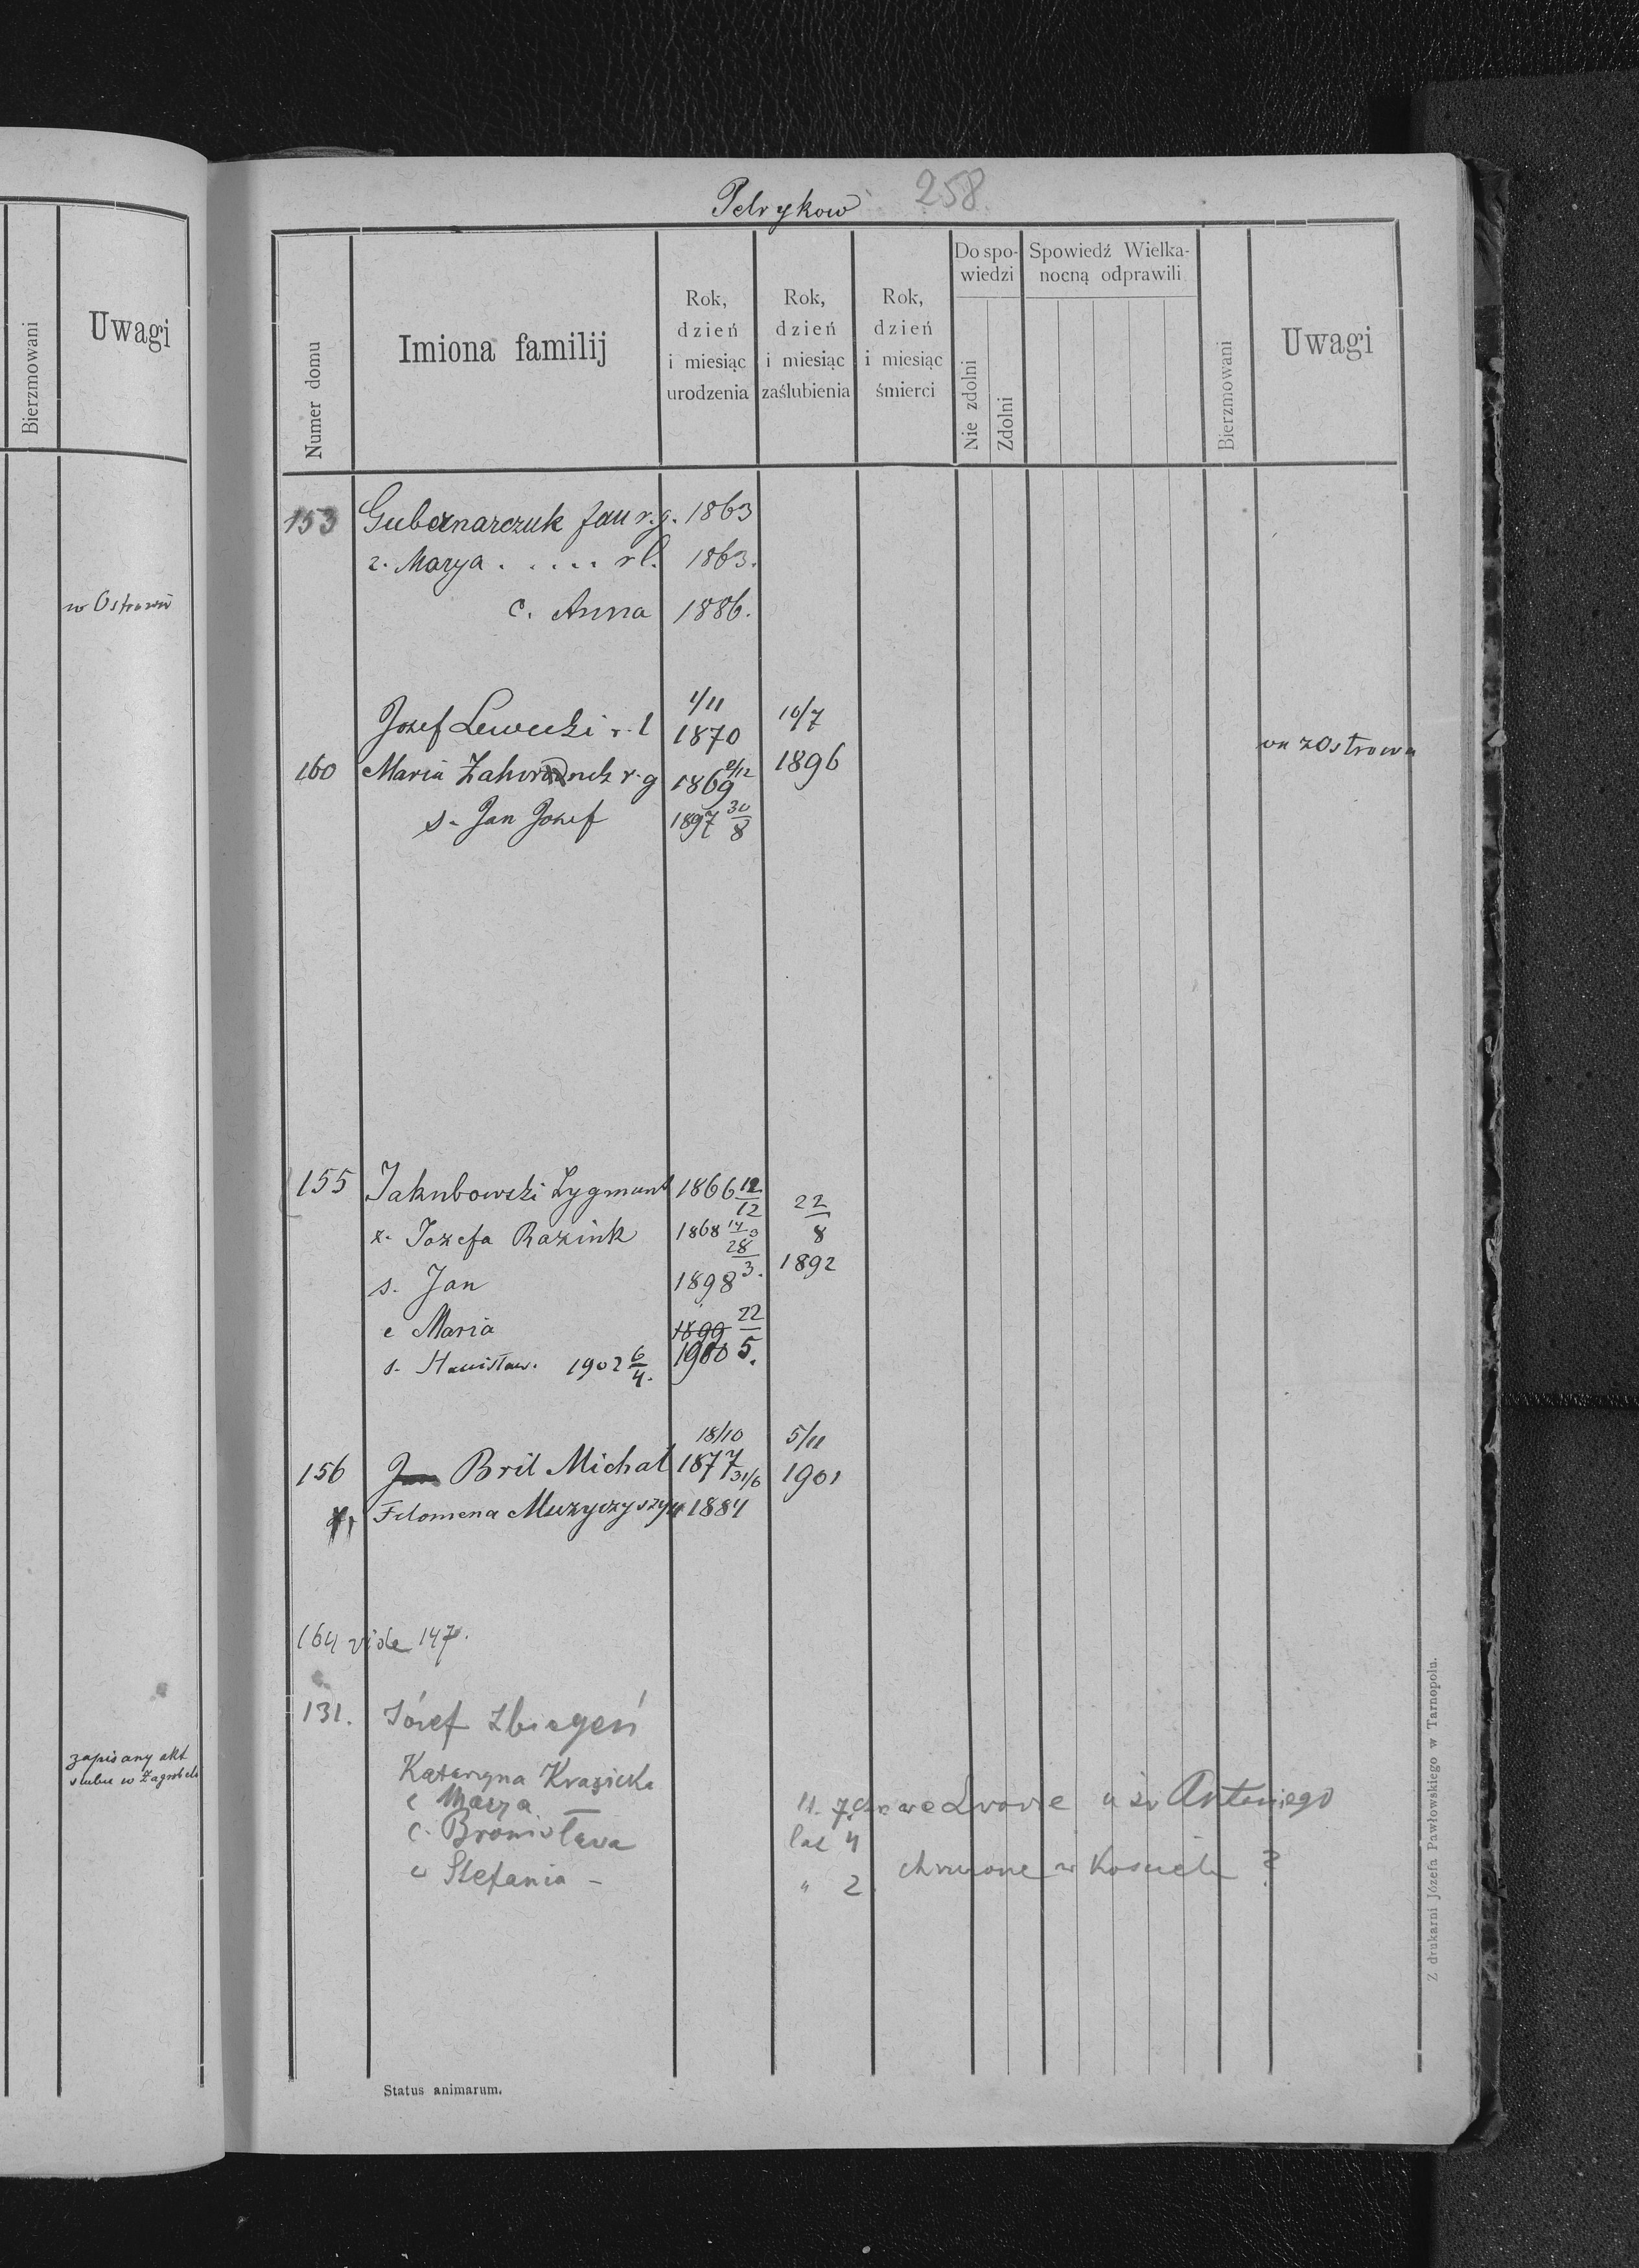 Bierzmowani
Uwagi
w Ostrowie
zapisany akt
ślubu w Zagrobeli
Petrykow 258.
Numer domu
Imiona familij
Rok, dzień i miesiąc urodzenia
Rok, dzień i miesiąc zaślubienia
Rok, dzień i miesiąc śmierci
Do spowiedzi
Nie zdolni
Zdolni
Spowiedź Wielkanocną odprawili
Bierzmowani
Uwagi
153 Gubernarczuk Jan r.g. 1863
ż. Marya . . . . . rł. 1863.
c. Anna 1886.
1/11 16/7
Józef Lewicki r. ł 1870
160 Maria r. g 1869 2/12 1896 z Ostrowa
s. Jan Józef 1897 30/8
155 Jakubowski Zygmunt 1866 12/12 22/8
ż. Jozefa Razink 1868
s. Jan 1898 28/3. 1892
c Maria 1899 22/5.
s. Stanisław. 1902 6/4. 1900
18/10 5/11
156 Jan Bril Michał 1877 1901
ż. Filomena Muzyczyszyn 1884 31/6
164 vide 147.
131. Józef Zbiegeń
Katarzyna Krasicka
c Marya 11. 7. we Lwowie u św Antoniego
c. Bronisława lat 4
c Stefania – " 2. chrzczone w Kościele ?
Status animarum.
Z drukarni Józefa Pawłowskiego w Tarnopolu.